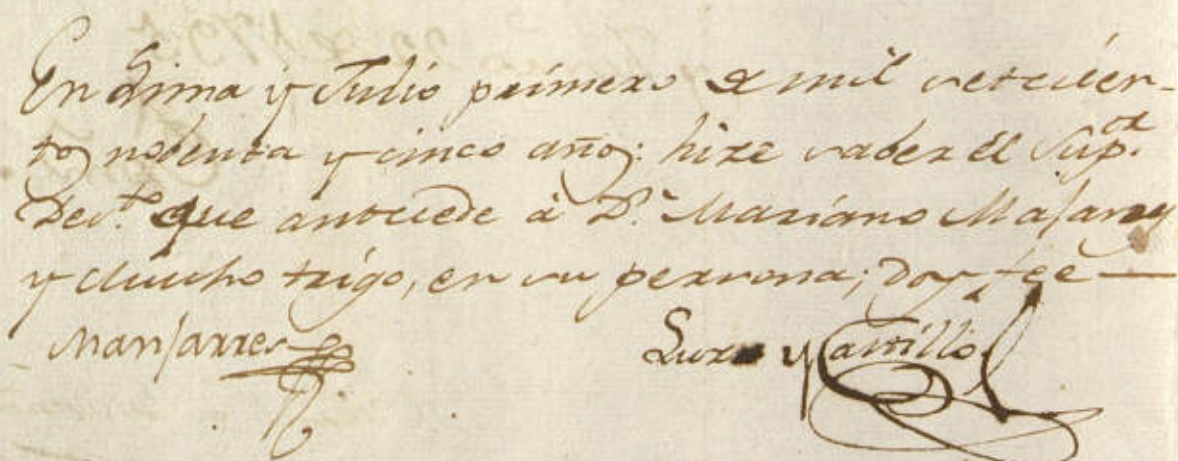 En Lima y Julio primero de mil setecien-
tos nobenta y cinco años: hize saber el Sup.or
Dec.to que antecede à D.n Mariano Malarin
y Mucho trigo, en su persona; doy fee —
Manjarres
Luzio y Castillo